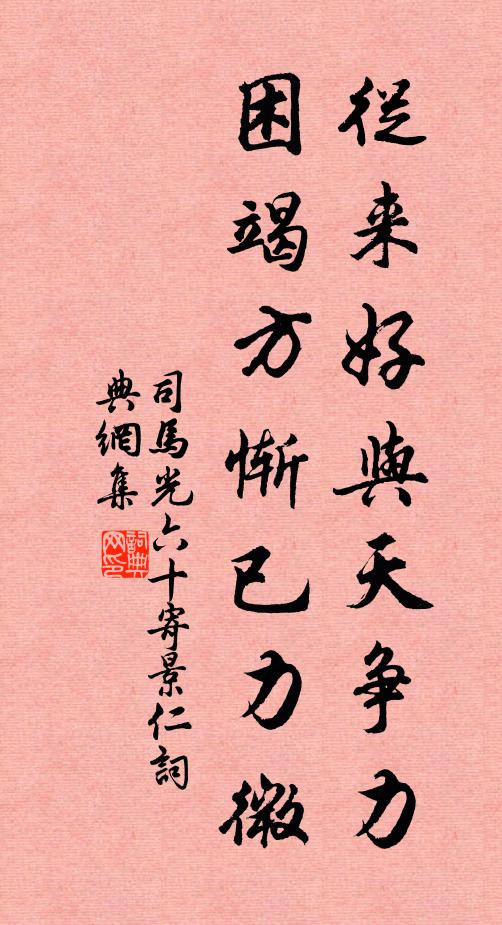 從来好與天争力
困竭方慚已力微
司馬光六十寄景仁詞
典網集
詞典
网印